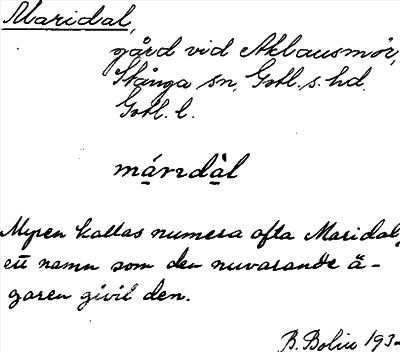 Maridal,
gård vid Aklausmör,
Stånga sn, Gotl. s. hd.
Gotl. l.
márɪdàl
Myren kallas numera ofta Maridal,
ett namn som den nuvarande ä-
garen givit den.
B. Bolin 193